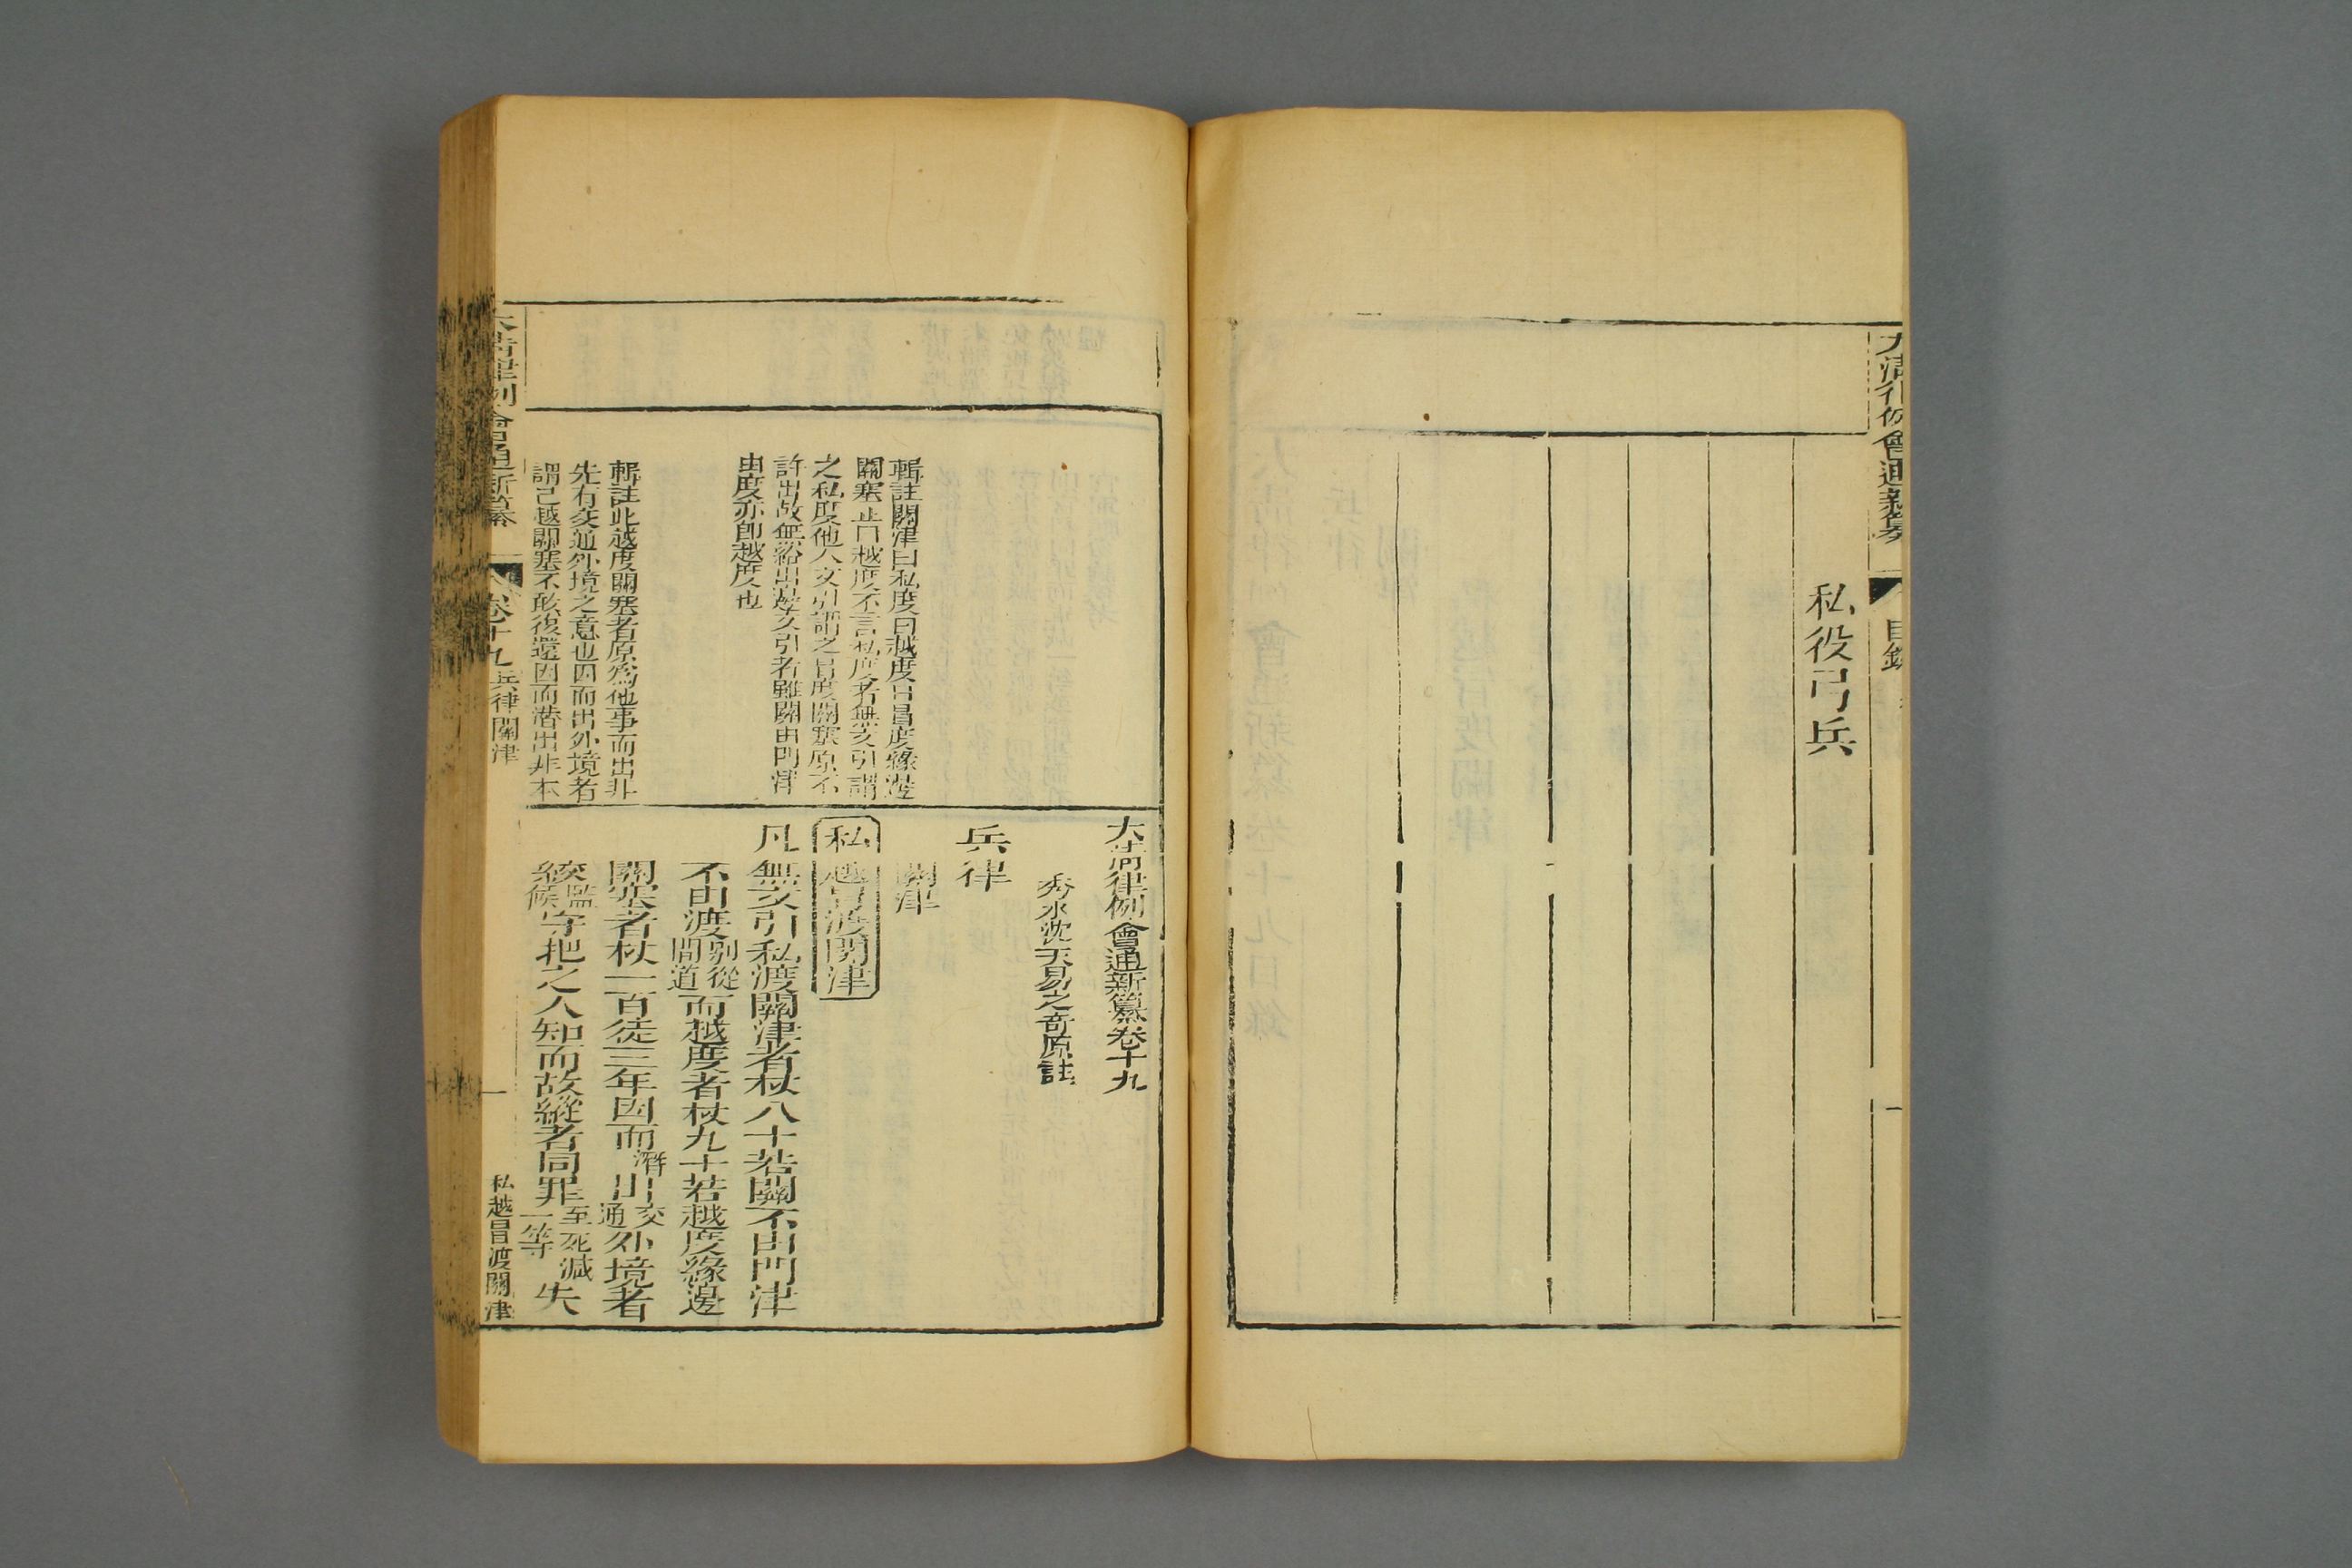 大清律例會通新纂
目錄
一
私役弓兵
大清律例會通新纂卷十九
秀水沈天易之奇原註
兵律
關津
私越冒渡關津
凡無文引私渡關津者杖八十若關不由門津
不由渡別從間道而越度者杖九十若越度緣邊
關塞者杖一百徒三年因而潛出交通外境者
絞監候守把之人知而故縱者同罪至死減一等失
輯註關津曰私度曰越度曰冒度緣邊
關塞止曰越度不言私度者無文引謂
之私度他人文引謂之冒度關塞原不
許出故無給出邊文引者雖關由門津
由度亦即越度也
輯註此越度關塞者原為他事而出非
先有交通外境之意也因而出外境者
謂已越關塞不敢復還因而潜出非本
大清律例會通新纂
卷十九兵律關津
一
私越冒渡關津